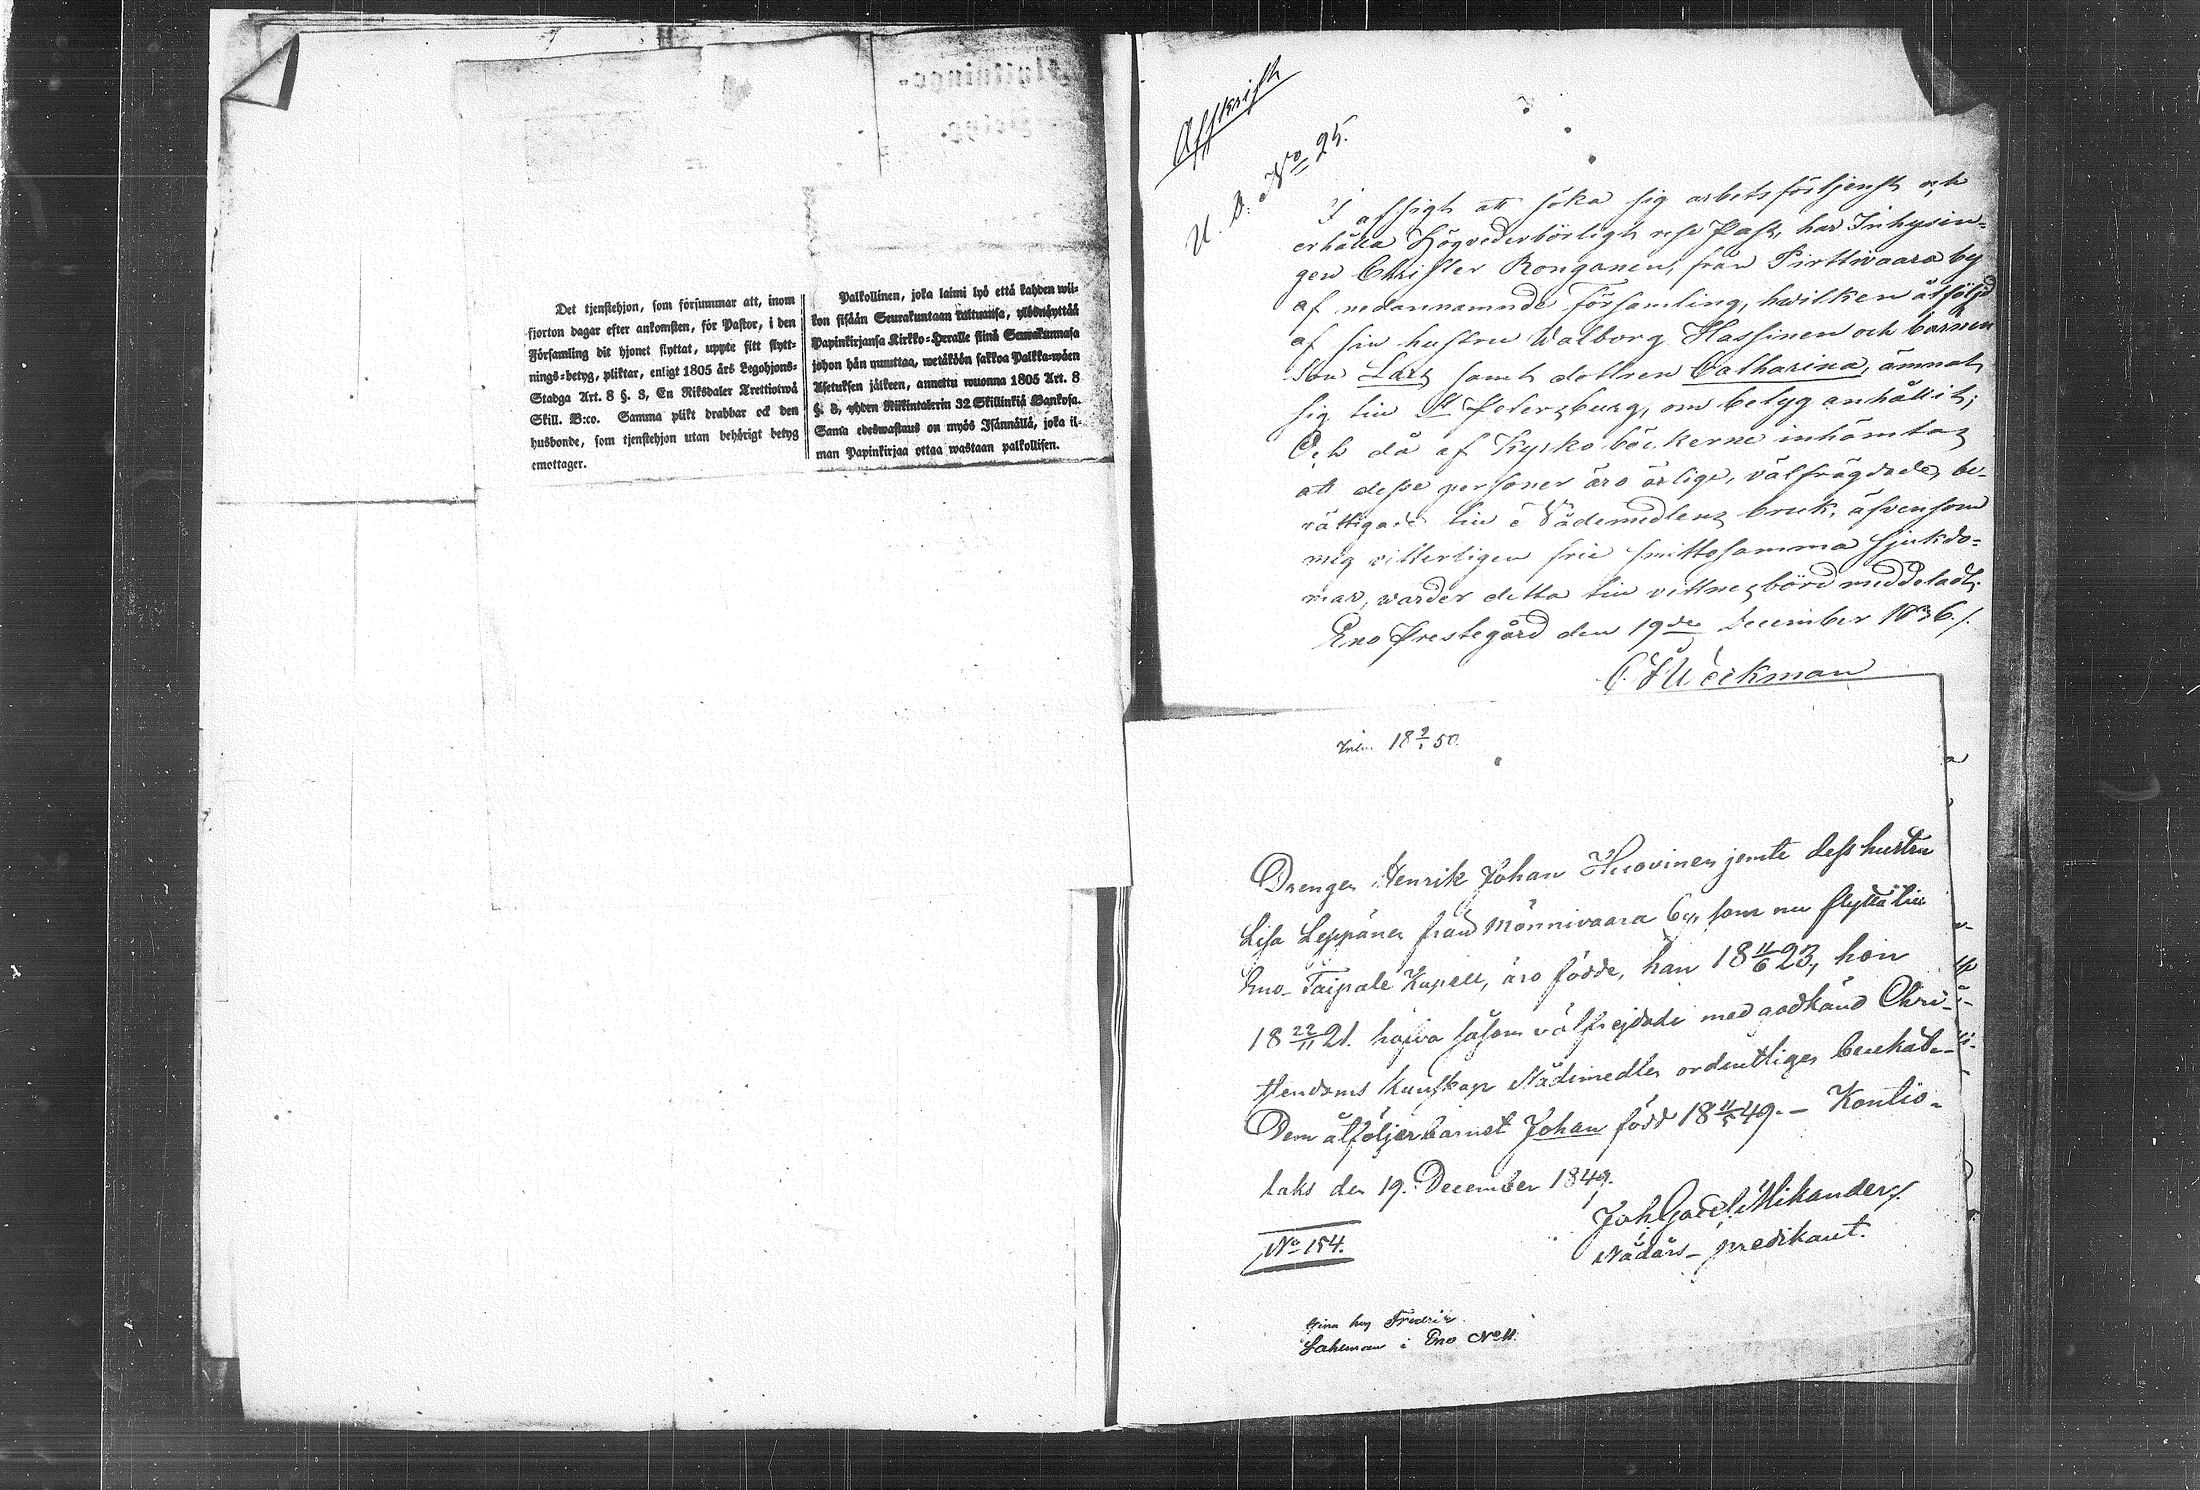 Det tjenstehjon, som försummar att, inom
fjorton dagar efter ankomsten, för Pastor, i den
Församling dit hjonet flyttat, uppte sitt flytt-
nings-betyg, pliktar, enligt 1805 års Legohjons-
Stadga Art. 8 §. 3, En Riksdaler Trettiotwå
Skill. B:co. Samma plikt drabbar ock den
husbonde, som tjenstehjon utan behörigt betyg
emottager.
Palkollinen, joka laimi lyö että kahden wii-
kon sisään Seurakuntaan tultuansa, ylösnäyttää
Papinkirjansa Kirkko-Herralle siinä Seurakunnasa
johon hän muuttaa, wetäköön sakkoa Palkka-wäen
Asetuksen jälkeen, annettu wuonna 1805 Art. 8
§. 3, yhden Riikintalerin 32 Skillinkiä Bankosa.
Sama edeswastaus on myös Isännällä, joka il-
man Papinkirjaa ottaa wastaan palkollisen.
Afskrift
U. B. No 25.
I afsigt att söka sig arbetsförtjenst och
erhålla Högvederbörligt rese Pass, har Inhysin-
gen Christer Ronganen, från Pirttivaara by
af nedannamnde Församling, hvilken åtföljd
af sin hustru Walborg Hassinen och barnen
Son Lars samt dottren Catharina, ämnat
sig till St Petersburg, om betyg anhållit;
Och då af Kyrko böckerne inhämtas
att desse personer äro ärlige, välfrägdade, be-
rättigade till Nådemedlens bruk, äfvensom
mig vitterligen frie smittosamma sjukdo-
mar, warder detta till vittnesbörd meddeladt.
Eno Prestegård den 19de December 1836./.
Weckman
18 2/1 50.
Drengen Henrik Johan Huovinen jemte dess hustru
Lisa Leppänen från Mönnivaara by, som nu flytta till
Eno-Taipale Kapell, äro födde, han 18 11/6 23, hon
18 22/11 21. hafva såsom välfrejdade med godkänd Chri-
stendoms kunskap Nådemedlen ordentligen begått.
Dem åtföljer barnet Johan född 18 11/5 49. – Kontio-
laks den 19. December 1849.
Joh. Gad. Mikander/.
Nådårs-predikant.
No 154.
Fredric
i Eno No 11.